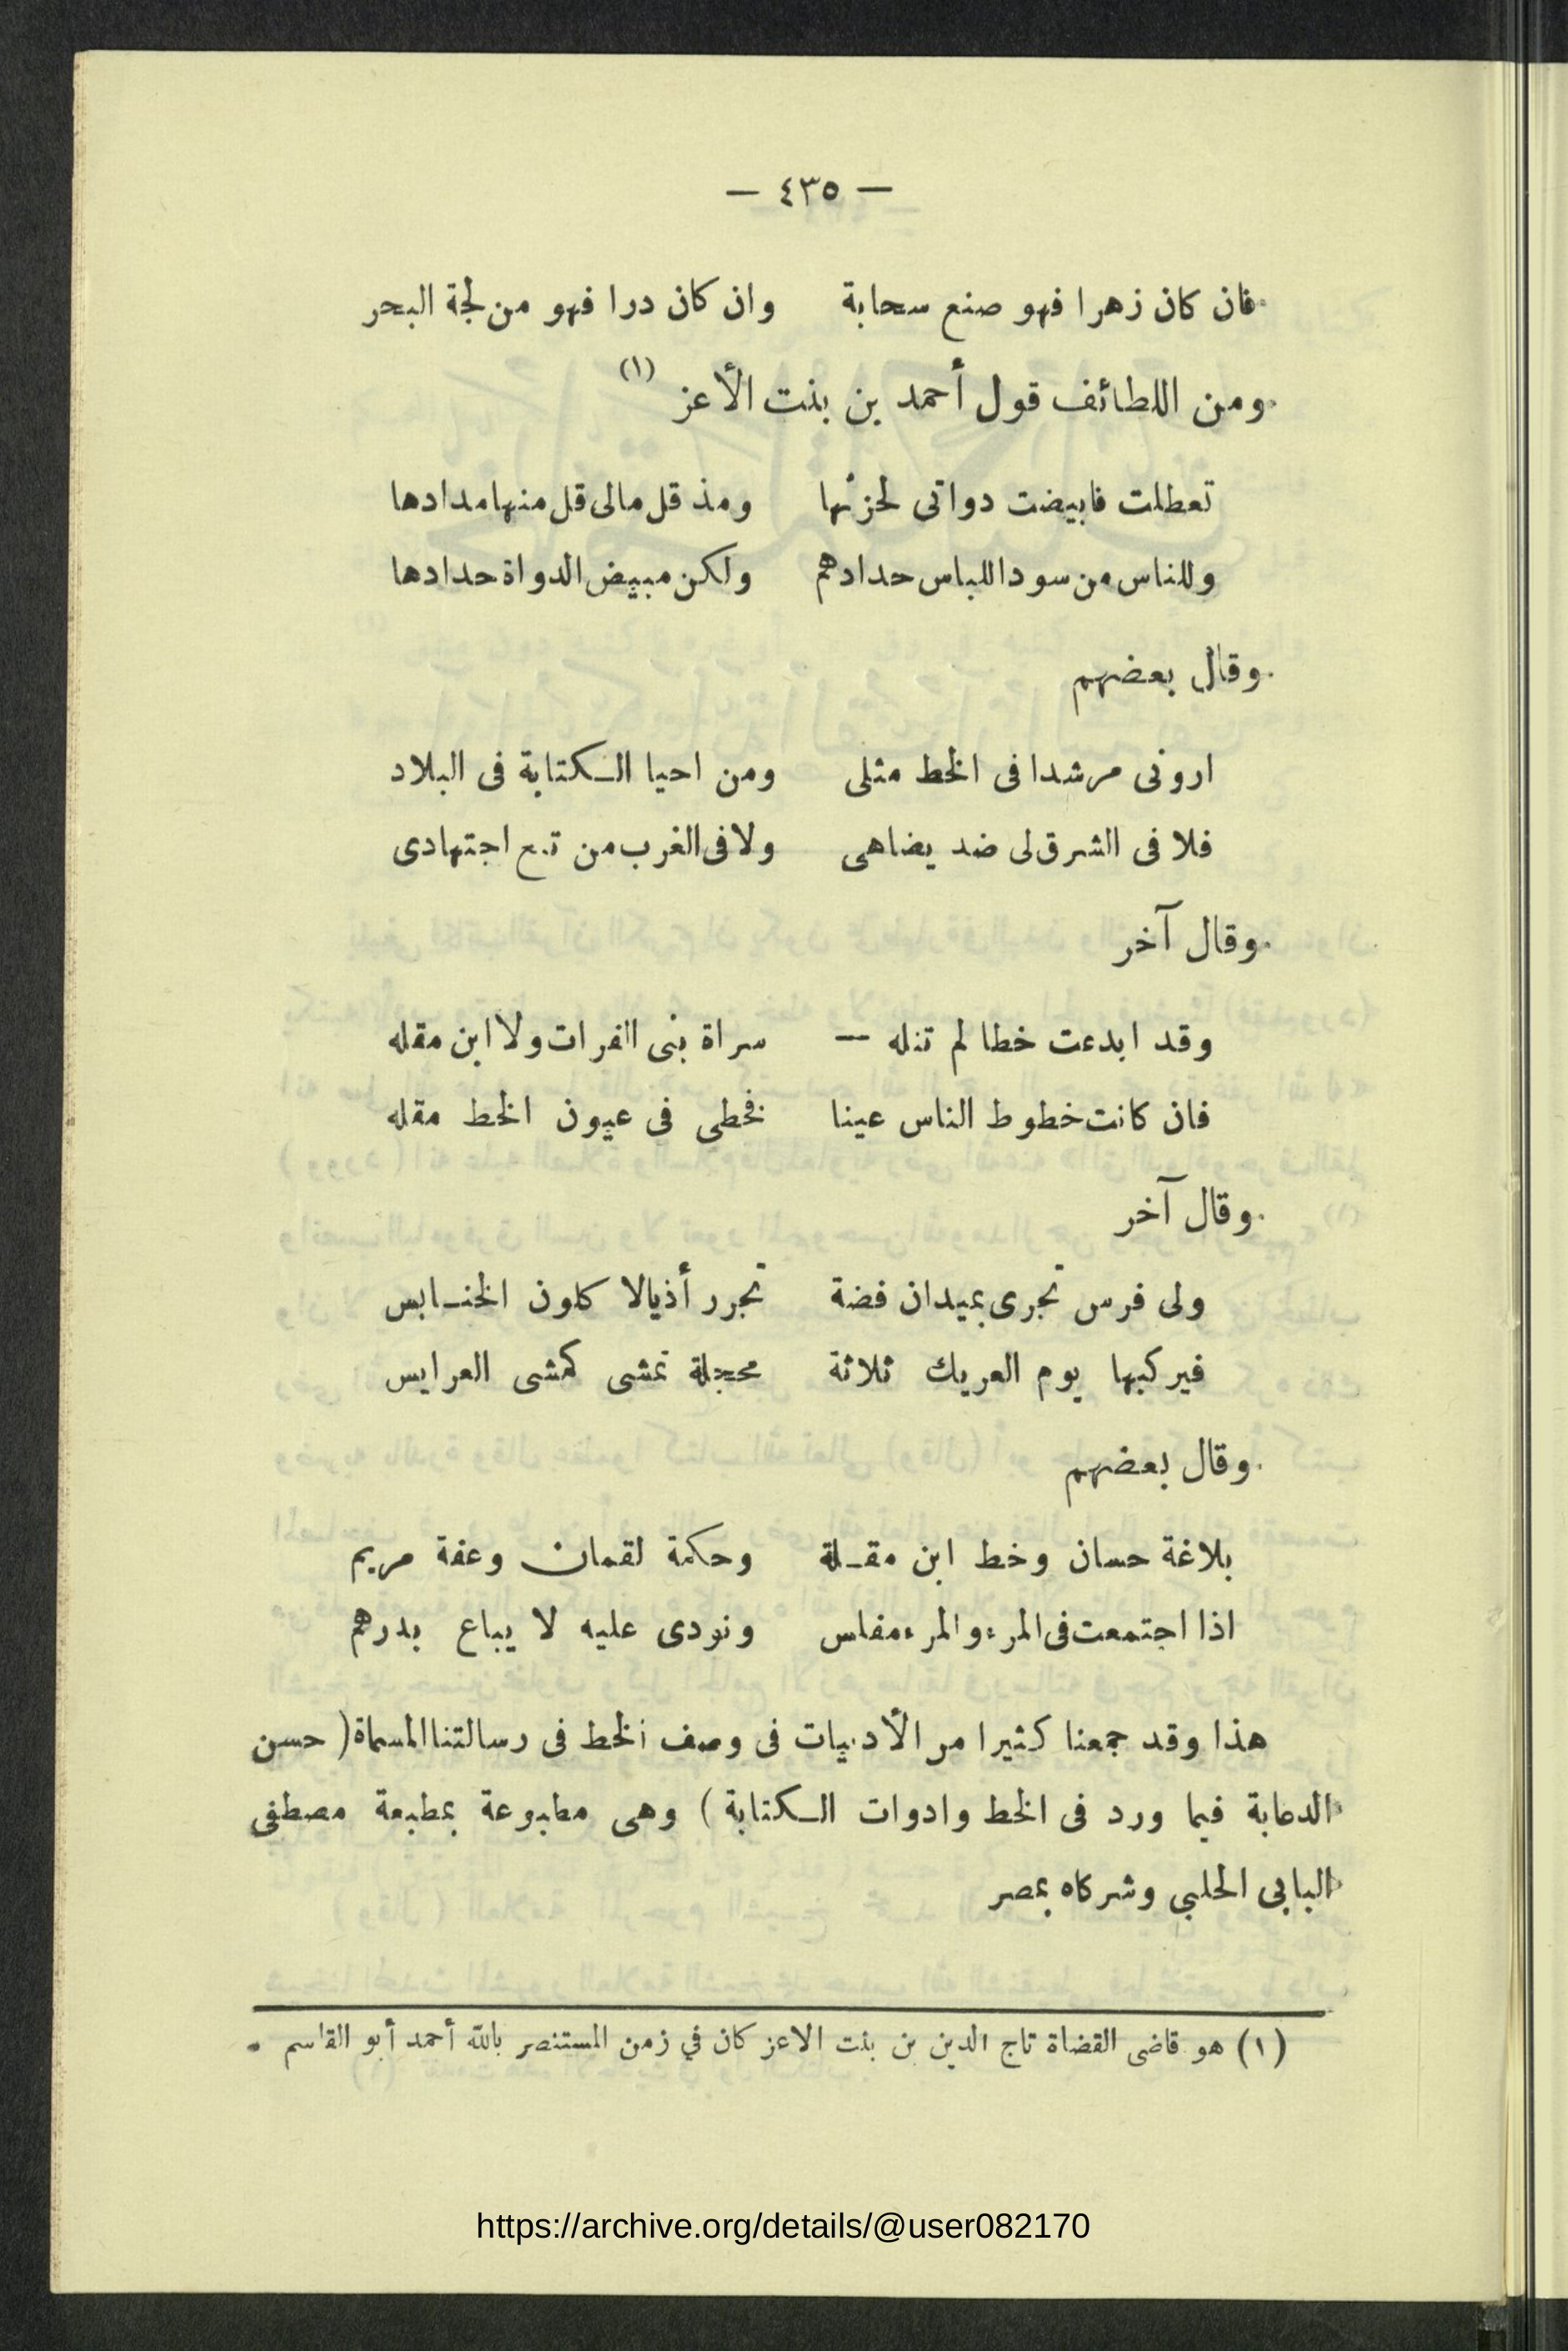 — ٤٣٥ —
فان كان زهرا فهو صنع سحابة وان كان درا فهو من لجة البحر
ومن اللطائف قول أحمد بن بنت الأعز (١)
تعطلت فابيضت دواتى لحزنها ومذ قل مالى قل منها مدادها
وللناس من سود اللباس حدادهم ولكن مبيض الدواة حدادها
وقال بعضهم
ارونى مرشدا فى الخط مثلى ومن احيا الكتابة فى البلاد
فلا فى الشرق لى ضد يضاهى ولا فى الغرب من اجتهادى
وقال آخر
وقد ابدعت خطا لم تنله — سراة بنى الفرات ولا ابن مقله
فان كانت خطوط الناس عينا فخطى فى عيون الخط مقله
وقال آخر
ولى فرس تجرى بميدان فضة تجرر أذيالا كلون الخنابس
فيركبها يوم العريك ثلاثة محجلة تمشى كمشى العرايس
وقال بعضهم
بلاغة حسان وخط ابن مقلة وحكمة لقمان وعفة مريم
اذا اجتمعت فى المرء والمرء مفلس ونودى عليه لا يباع بدرهم
هذا وقد جمعنا كثيرا من الأدبيات فى وصف الخط فى رسالتنا المسماة ( حسن
الدعابة فيما ورد فى الخط وادوات الكتابة ) وهى مطبوعة بمطبعة مصطفى
البابى الحلبي وشركاه بمصر
(١) هو قاضى القضاة تاج الدين بن بنت الاعز كان في زمن المستنصر بالله أحمد أبو القاسم .
https://archive.org/details/@user082170